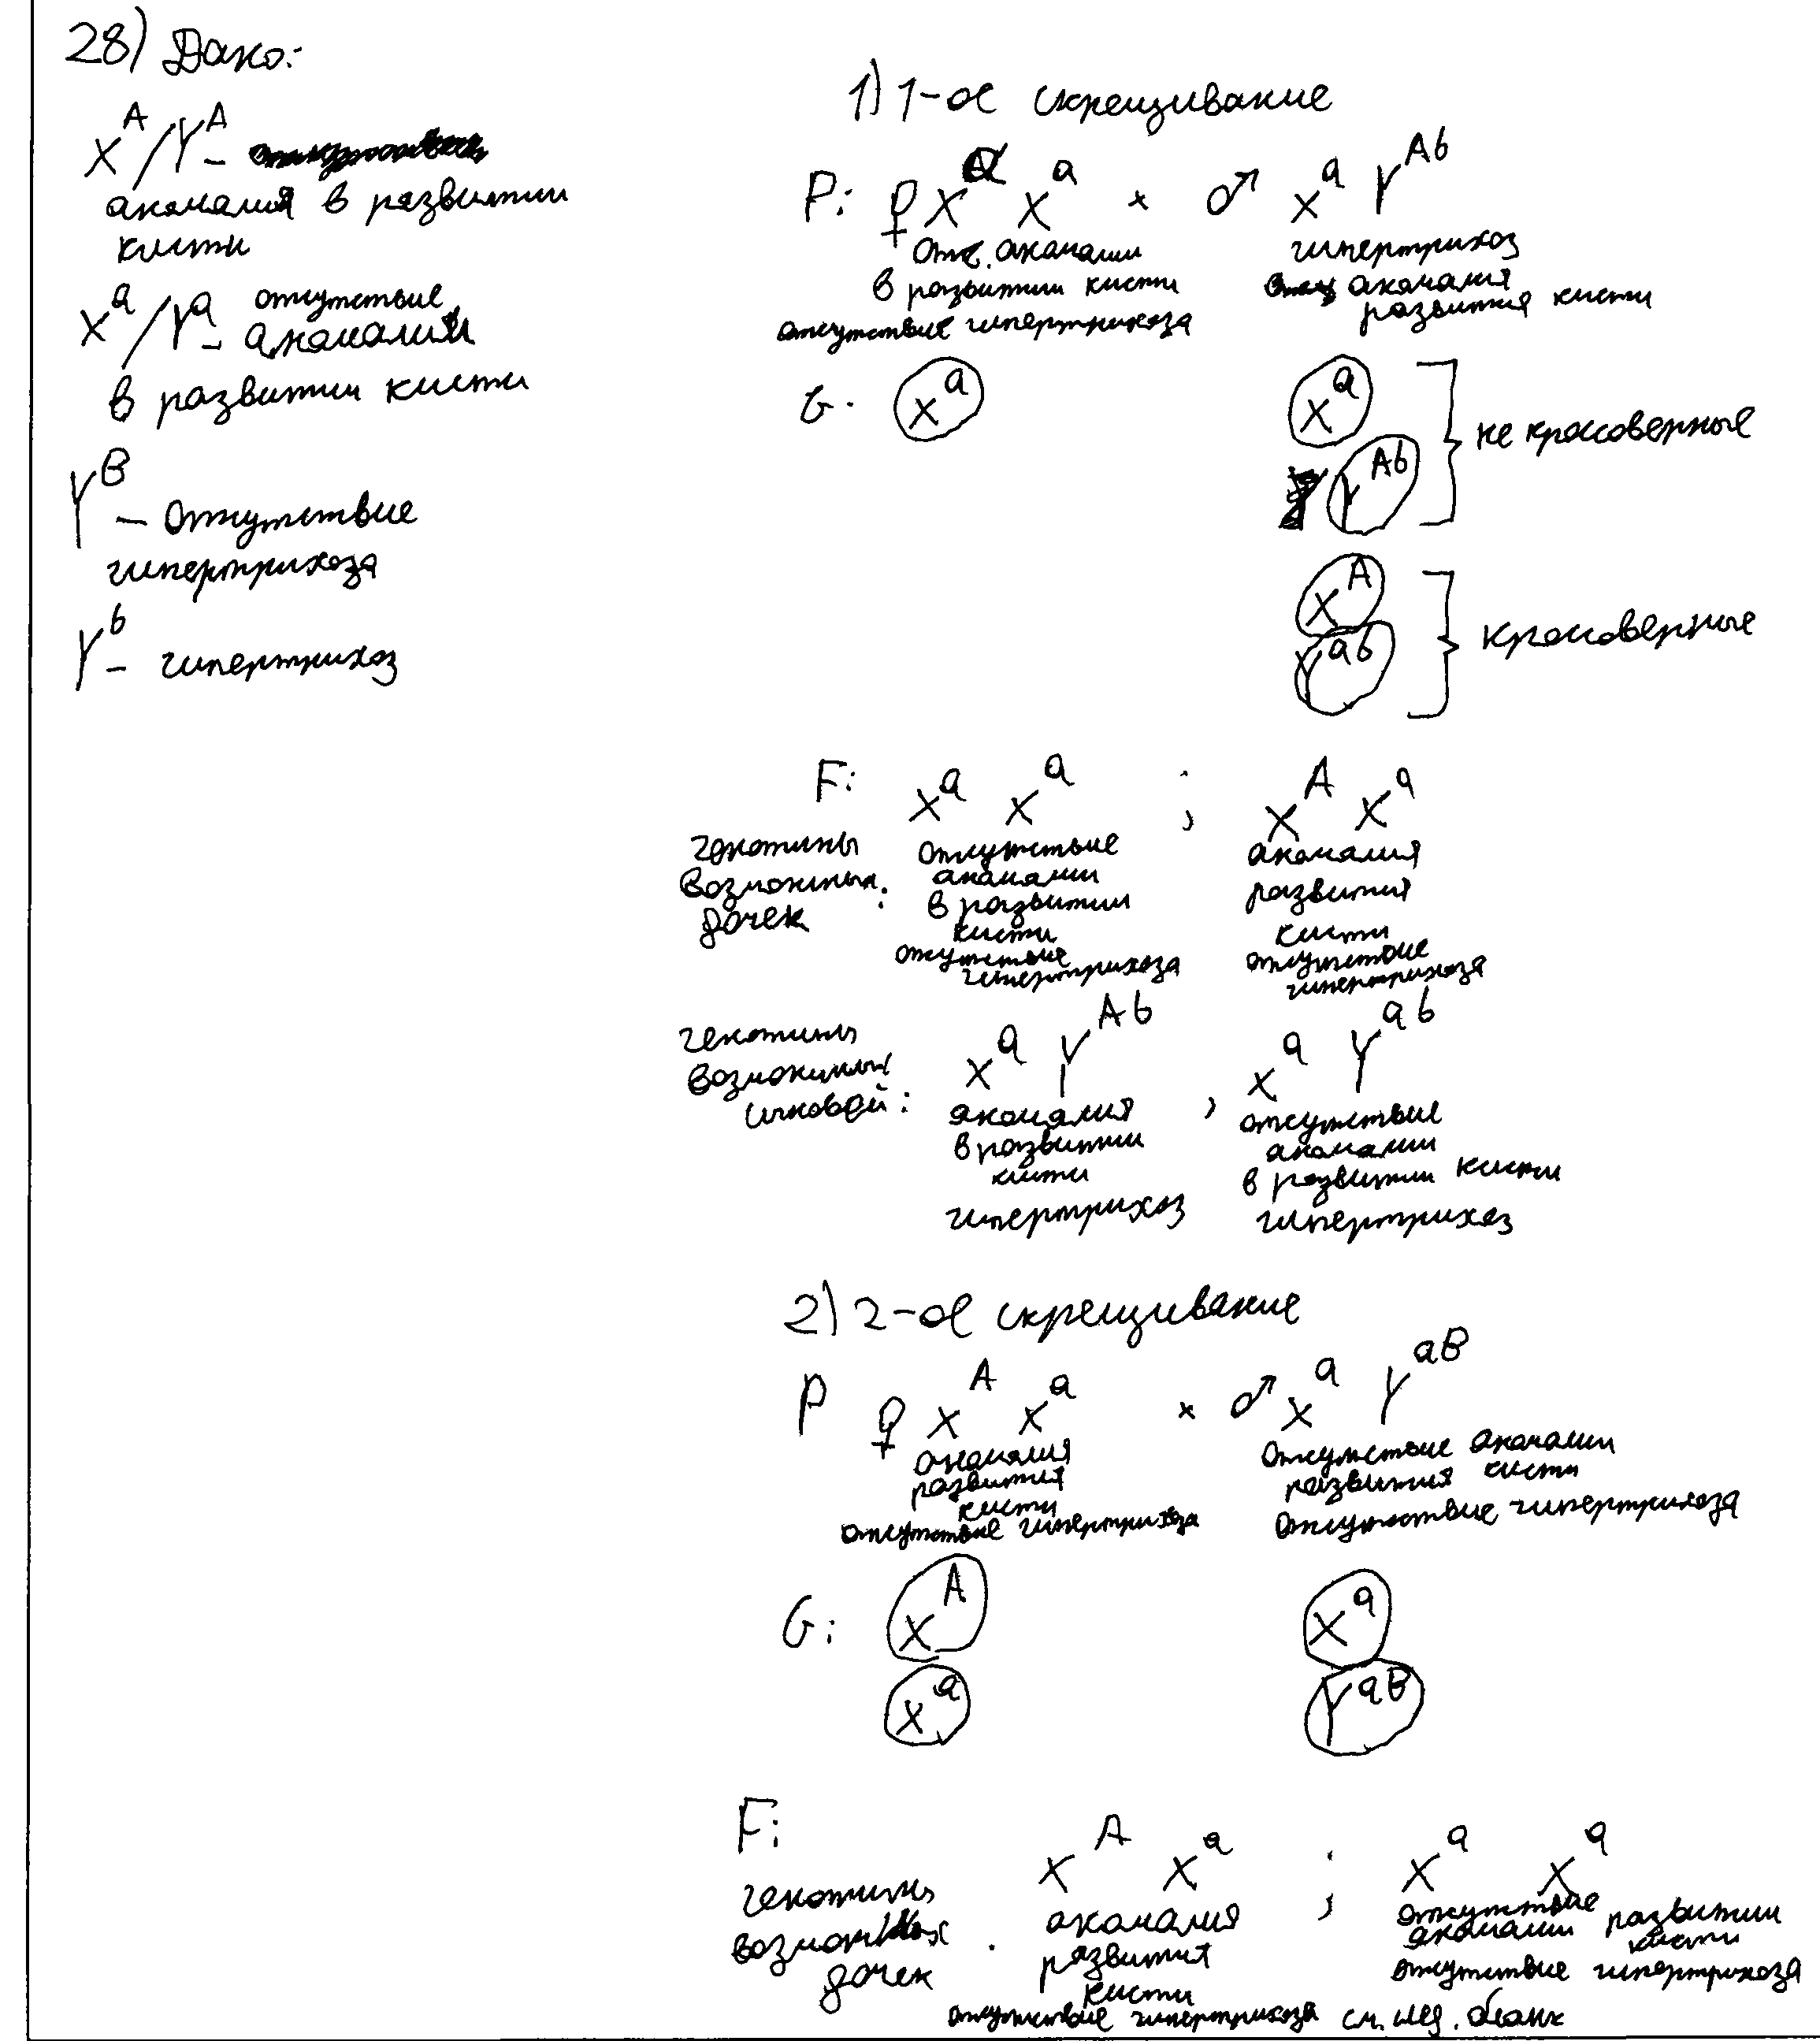 28) Дано:
X^A/Y^A –
аномалия в развитии
кисти
X^a/Y^a – отсутствие
аномалии
в развитии кисти
Y^B – отсутствие
гипертрихоза
Y^b – гипертрихоз
1) 1-ое скрещивание
P: ♀ X^a X^a × ♂ X^a Y^Ab
отс. аномалии
в развитии кисти
отсутствие гипертрихоза
гипертрихоз
аномалия
развития кисти
G. X^a
X^a
Y^Ab
не кроссоверные
X^A
Y^ab
кроссоверные
F: X^a X^a ; X^A X^a
генотипы
возможных
дочек :
отсутствие
аномалии
в развитии
кисти
отсутствие
гипертрихоза
аномалия
развития
кисти
отсутствие
гипертрихоза
генотипы
возможных
сыновей :
X^a Y^Ab , X^a Y^ab
аномалия
в развитии
кисти
гипертрихоз
отсутствие
аномалии
в развитии кисти
гипертрихоз
2) 2-ое скрещивание
P ♀ X^A X^a × ♂ X^a Y^aB
аномалия
развития
кисти
отсутствие гипертрихоза
отсутствие аномалии
развития кисти
отсутствие гипертрихоза
G: X^A
X^a
X^a
Y^aB
F: X^A X^a ; X^a X^a
генотипы
возможных
дочек
аномалия
развития
кисти
отсутствие гипертрихоза
отсутствие
аномалии развитии
кисти
отсутствие гипертрихоза
см. след. бланк